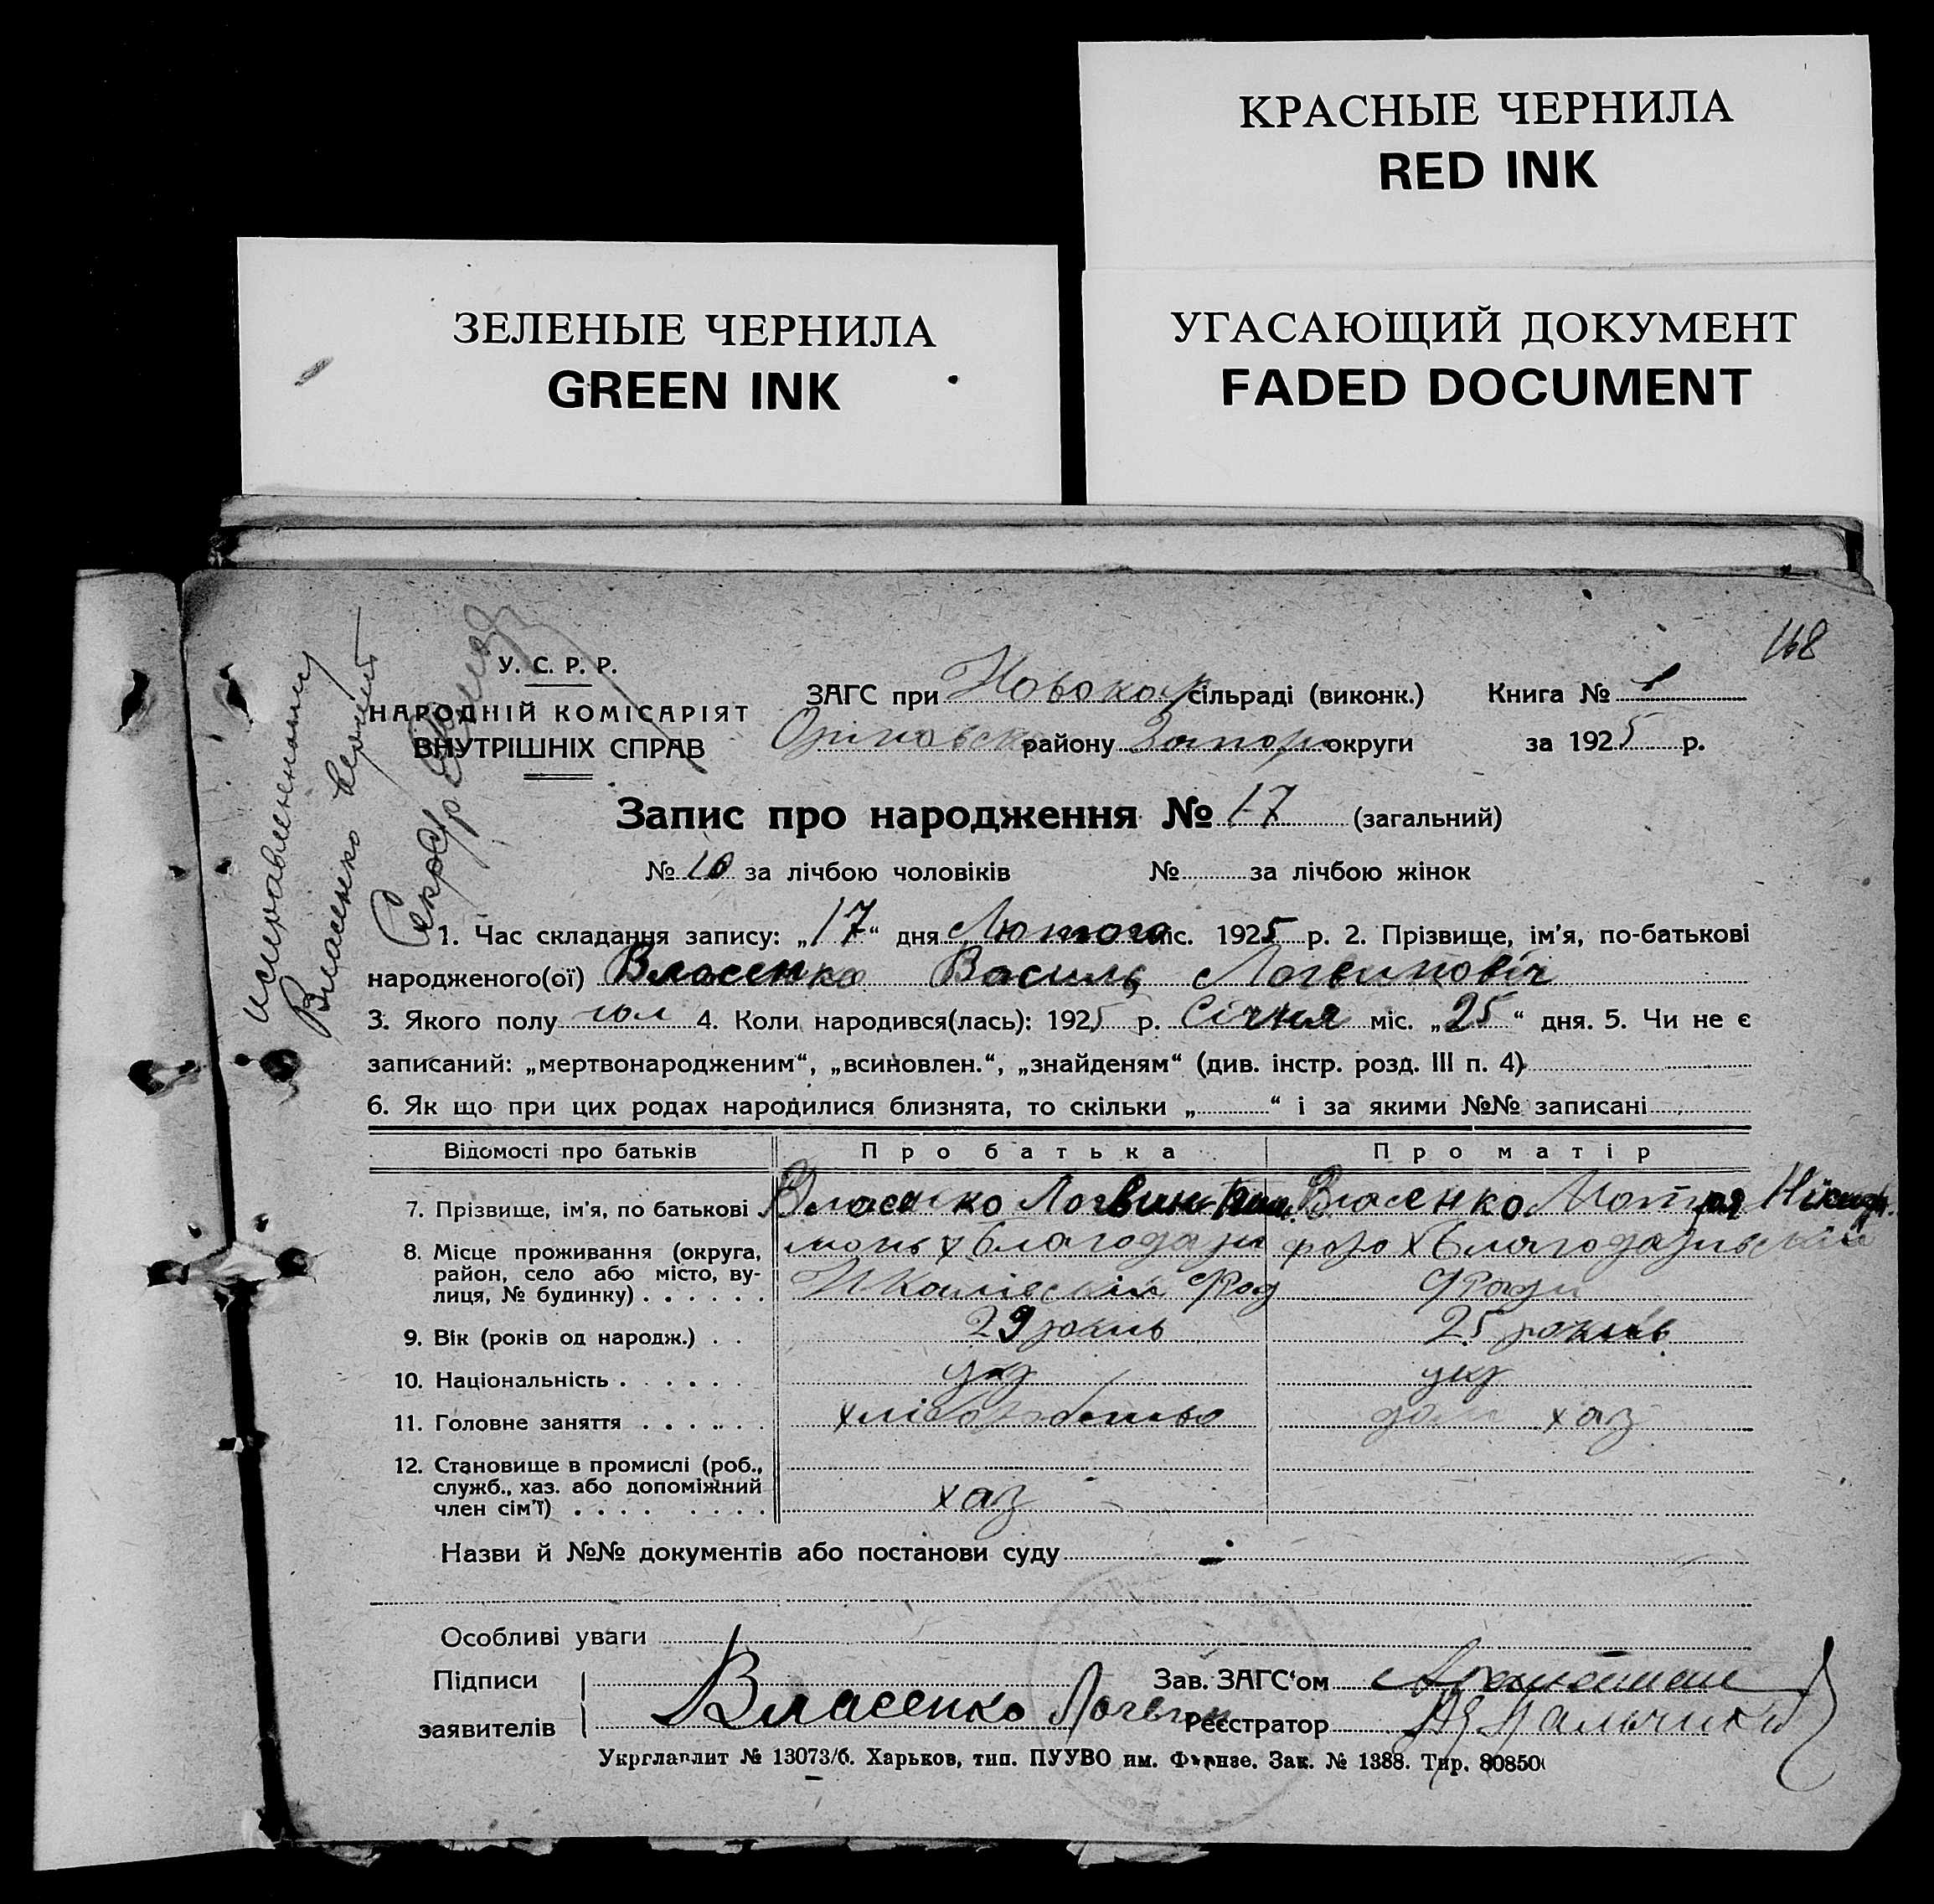 КРАСНЫЕ ЧЕРНИЛА
RED INK
ЗЕЛЕНЫЕ ЧЕРНИЛА
GREEN INK
УГАСАЮЩИЙ ДОКУМЕНТ
FADED DOCUMENT
168
исправленному
Власенко верить
Секр
У. С. Р. Р.
НАРОДНІЙ КОМІСАРІЯТ
ВНУТРІШНІХ СПРАВ
ЗАГС при сільраді (виконк.) Книга № 1
району Запор округи за 1925 р.
Запис про народження № 17 (загальний)
№ 10 за лічбою чоловіків № за лічбою жінок
1. Час складання запису: „17“ дня Лютого міс. 1925 р. 2. Прізвище, ім'я, по-батькові
народженого(ої) Власенко Василь Логвинович
3. Якого полу 4. Коли народився(лась): 1925 р. Січня міс. „25“ дня. 5. Чи не є
записаний: „мертвонародженим“, „всиновлен.“, „знайденям“ (див. інстр. розд. III п. 4)
6. Як що при цих родах народилися близнята, то скільки „ “ і за якими №№ записані
Відомості про батьків Про батька Про матір
7. Прізвище, ім'я, по батькові Власенко Логвин Власенко Мотря
8. Місце проживання (округа,
район, село або місто, ву-
лиця, № будинку)
9. Вік (років од народж.) 29 років 25 років
10. Національність укр укр
11. Головне заняття хліборобство дом хаз
12. Становище в промислі (роб.,
служб., хаз. або допоміжний
член сім'ї) хаз
Назви й №№ документів або постанови суду
Особливі уваги
Підписи Зав. ЗАГС'ом
заявителів Власенко Логвин Реєстратор
Укрглавлит № 13073/б. Харьков, тип. ПУУВО им. Фрунзе. Зак. № 1388. Тир. 80850